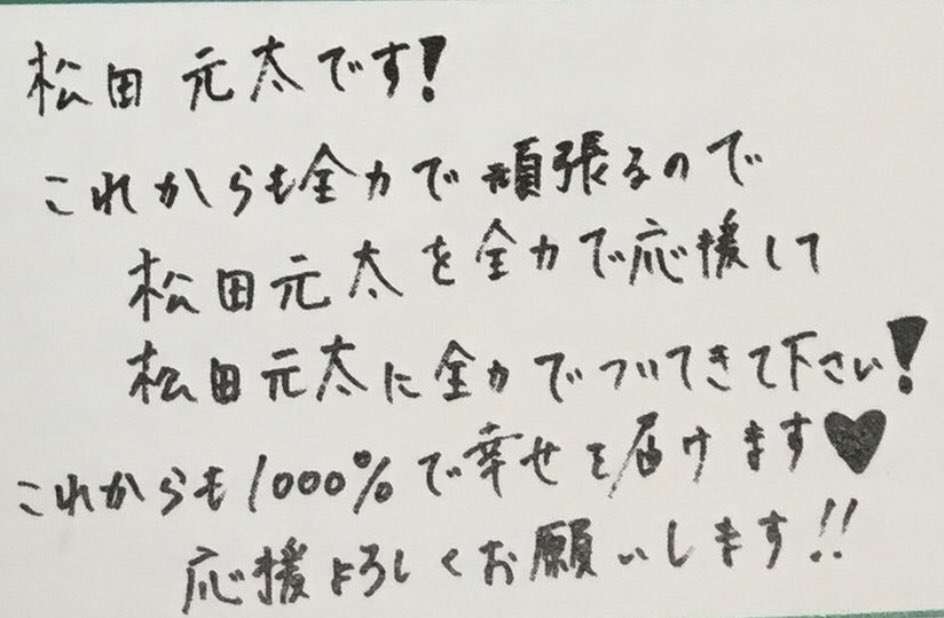 松田 元太です!
これからも全力で頑張るので
松田元太を全力で応援して
松田元太に全力でついてきて下さい!
これからも1000%で幸せを届けます♥
応援よろしくお願いします!!